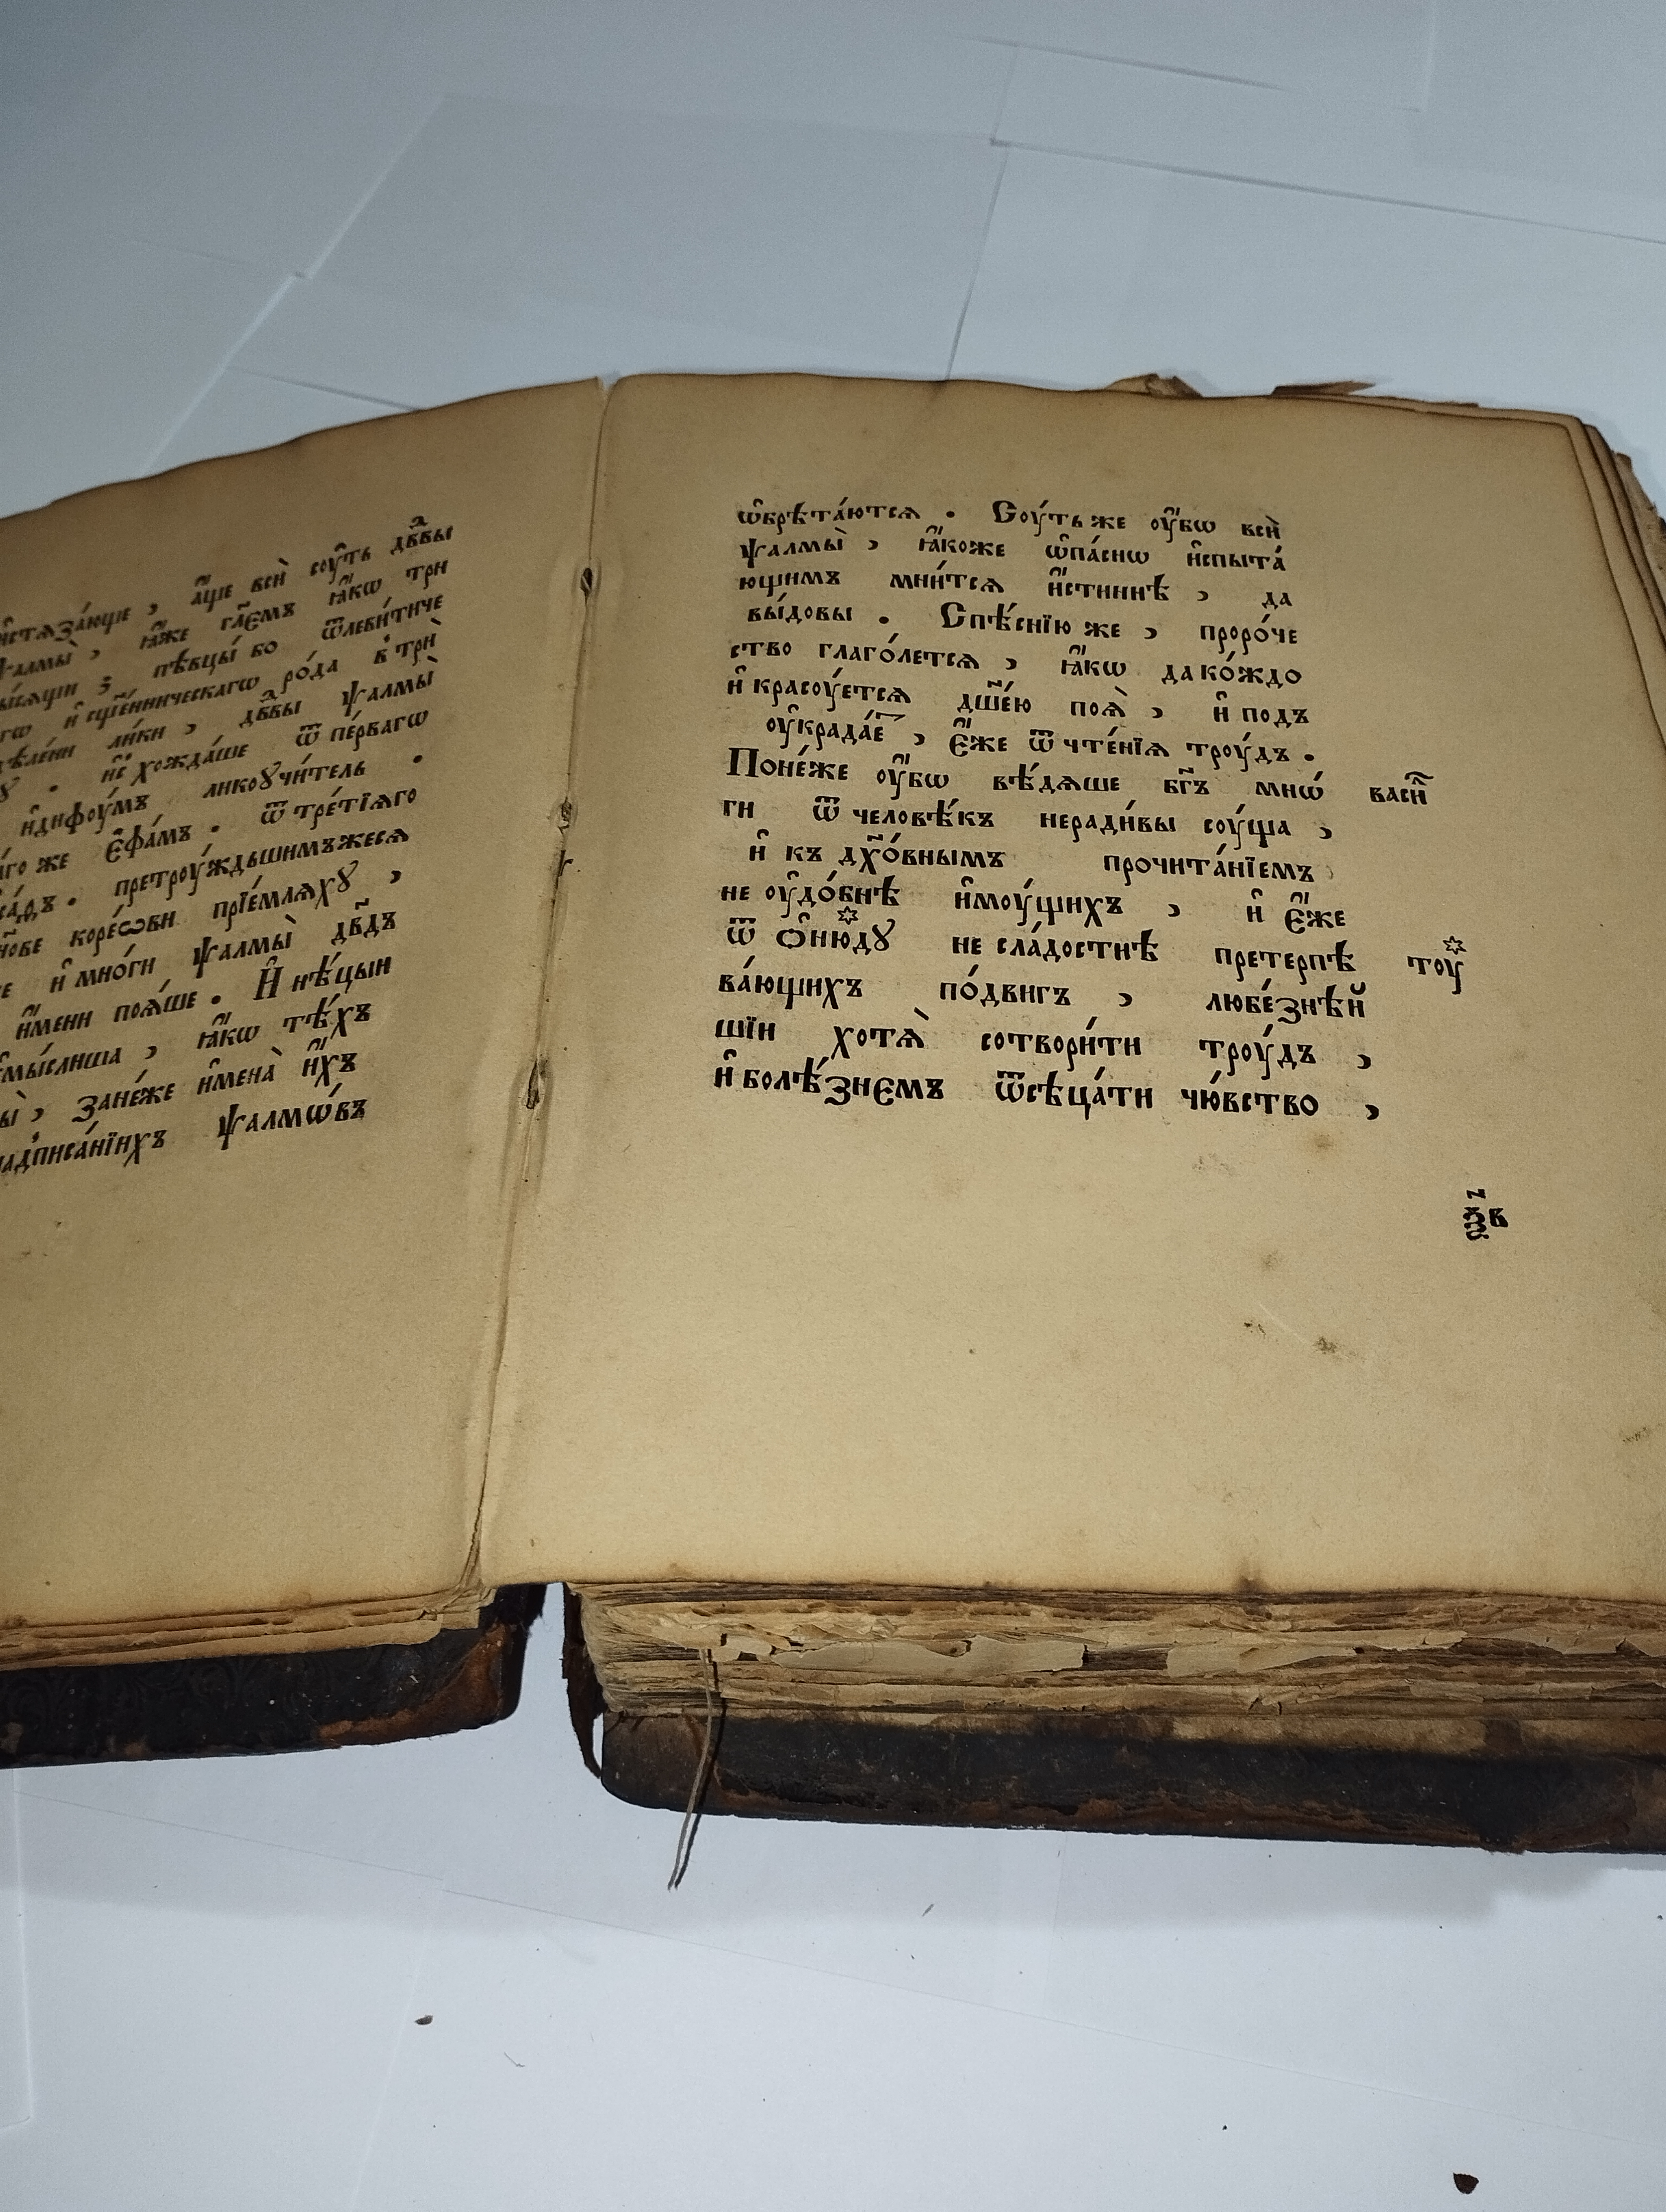 и҆стѧза́юще , а҆́ще всѝ соу́ть дв҃дⷶы
ѱалмы̀ , ꙗ҆́же гл҃емъ ꙗ҆́кѡ три
пѣвцы́ бо ѿлеви́тиче
и҆ сщ҃е́нническагѡ ро́да в̾ трѝ
ли́ки , дв҃дⷶы ѱалмы̀
не хожда́ше ѿ пе́рвагѡ
и҆диѳоу́мъ ликоꙋчи́тель .
же є҆ѳа́мъ . ѿ тре́тїѧго
претроу́ждьшимъжесѧ
коре́ѡви прїе́млѧхꙋ ,
и҆ мно́ги ѱалмы̀ дв҃дъ
и҆́мени поѧ́ше . И҆ нѣ́цыи
ꙗ҆́кѡ тѣ́хъ
зане́же и҆мена̀ и҆́хъ
ѱалмѡ́въ
ѡ҆брѣта́ютсѧ . Соу́ть же оу҆́бѡ всѝ
ѱалмы̀ , ꙗ҆́коже ѡ҆па́снѡ и҆спыта́
ющимъ мни́тсѧ и҆́стиннѣ , да
вы́довы . Спѣ́снїю же , проро́че
ство глаго́летсѧ , ꙗ҆́кѡ да ко́ждо
и҆ красоу́етсѧ дш҃е́ю поѧ̀ , и҆ подъ
оу҆крада́е҃ , є҆́же ѿ чте́нїѧ троу́дъ .
Поне́же оу҆́бѡ вѣ́дѧше бг҃ъ мнѡ́ васи҃
ги ѿ человѣ́къ неради́вы соу́ща ,
и҆ къ дх҃о́внымъ прочита́нїемъ
не оу҆до́бнѣ и҆моу́щихъ , и҆ є҆́же
ѿ ѻ҆ню́дꙋ не сла́достнѣ претерпѣ тоу
ва́ющихъ по́двигъ , любе́знѣй
шїи хотѧ̀ сотвори́ти троу́дъ ,
и҆ болѣ́знемъ ѿсѣца́ти чю́вство ,